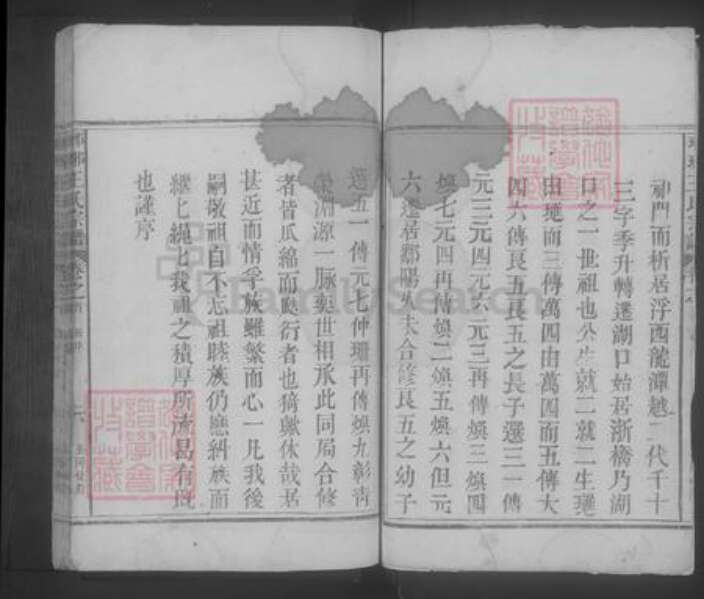 神門而析居浮西龍潭越二代千十
三字季升轉遷湖口始居浙橋乃湖
口之一世祖也公生就二就二生璣
由璣而三傳萬四由萬四而五傳大
四六傳良五良五之長子選三一傳
元三元四元六元三再傳煥三煥四
煥七元四再傳煥二煥五煥六但元
六遷居鄱陽 大合修良五之幼子
選五一傳元七仲珊再傳煥九彰靑
淵源一脉奕世相承此同局合修
者皆瓜綿而瓞衍者也猗歟休哉居
甚近而情孚族雖繁而心一凡我後
嗣敬祖自不忘祖睦族仍應糾族而
繼匕繩匕我祖之積厚所流曷有旣
也謹序
王氏宗譜
FamilySearch